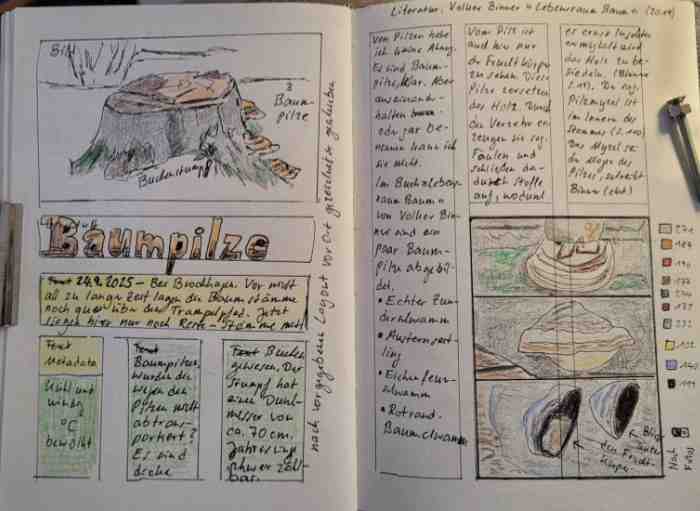 Bild
3
Baum-
pilze
Buchenstumpf
nach vorgegebenem Layout vor Ort gezeichnet + geschrieben
Baumpilze
Text 24.9.2025 – Bei Brockhagen. Vor nicht
all zu langer Zeit lagen die Baumstämme
noch quer über den Trampelpfad. Jetzt
liegen hier nur noch Reste – Stämme
Text
Metadata
Kühl und
windig
°C
bewölkt
Text
Baumpilzen,
wurden die
wegen den
Pilzen nicht
abtrans-
portiert?
Es sind
dicke
Text Buchen
gewesen. Der
Stumpf hat
einen Durch-
messer von
ca. 70 cm.
Jahresringe
schwer zähl-
bar.
Literatur: Volker Binner "Lebensraum Baum" (2019)
Von Pilzen habe
ich keine Ahnung.
Es sind Baum-
pilze, klar. Aber
auseinander-
halten
oder gar be-
nennen kann ich
sie nicht.
Im Buch "Lebens-
raum Baum"
von Volker Bin-
ner sind ein
paar Baum-
pilze abgebil-
det.
• Echter Zun-
derschwamm
• Austernseit-
ling
• Eichenfeuer-
schwamm
• Rotrand-
Baumschwamm
Vom Pilz ist
auch hier nur
der Fruchtkörper
zu sehen. Diese
Pilze zersetzen
das Holz. Und
der Verzehr er-
zeugen sie sog.
Fäulen und
schließen da-
durch Stoffe
auf, wodurch
er erst Insekten
ermöglicht wird
das Holz zu be-
siedeln. (Binner
Das sog.
Pilzmycel ist
im Innern des
Stammes (S. 100)
Das Mycel sei
der Magen des
Pilzes, schreibt
Binner (ebd.)
Blick
unter
den Frucht-
körper
Nach
Fotos